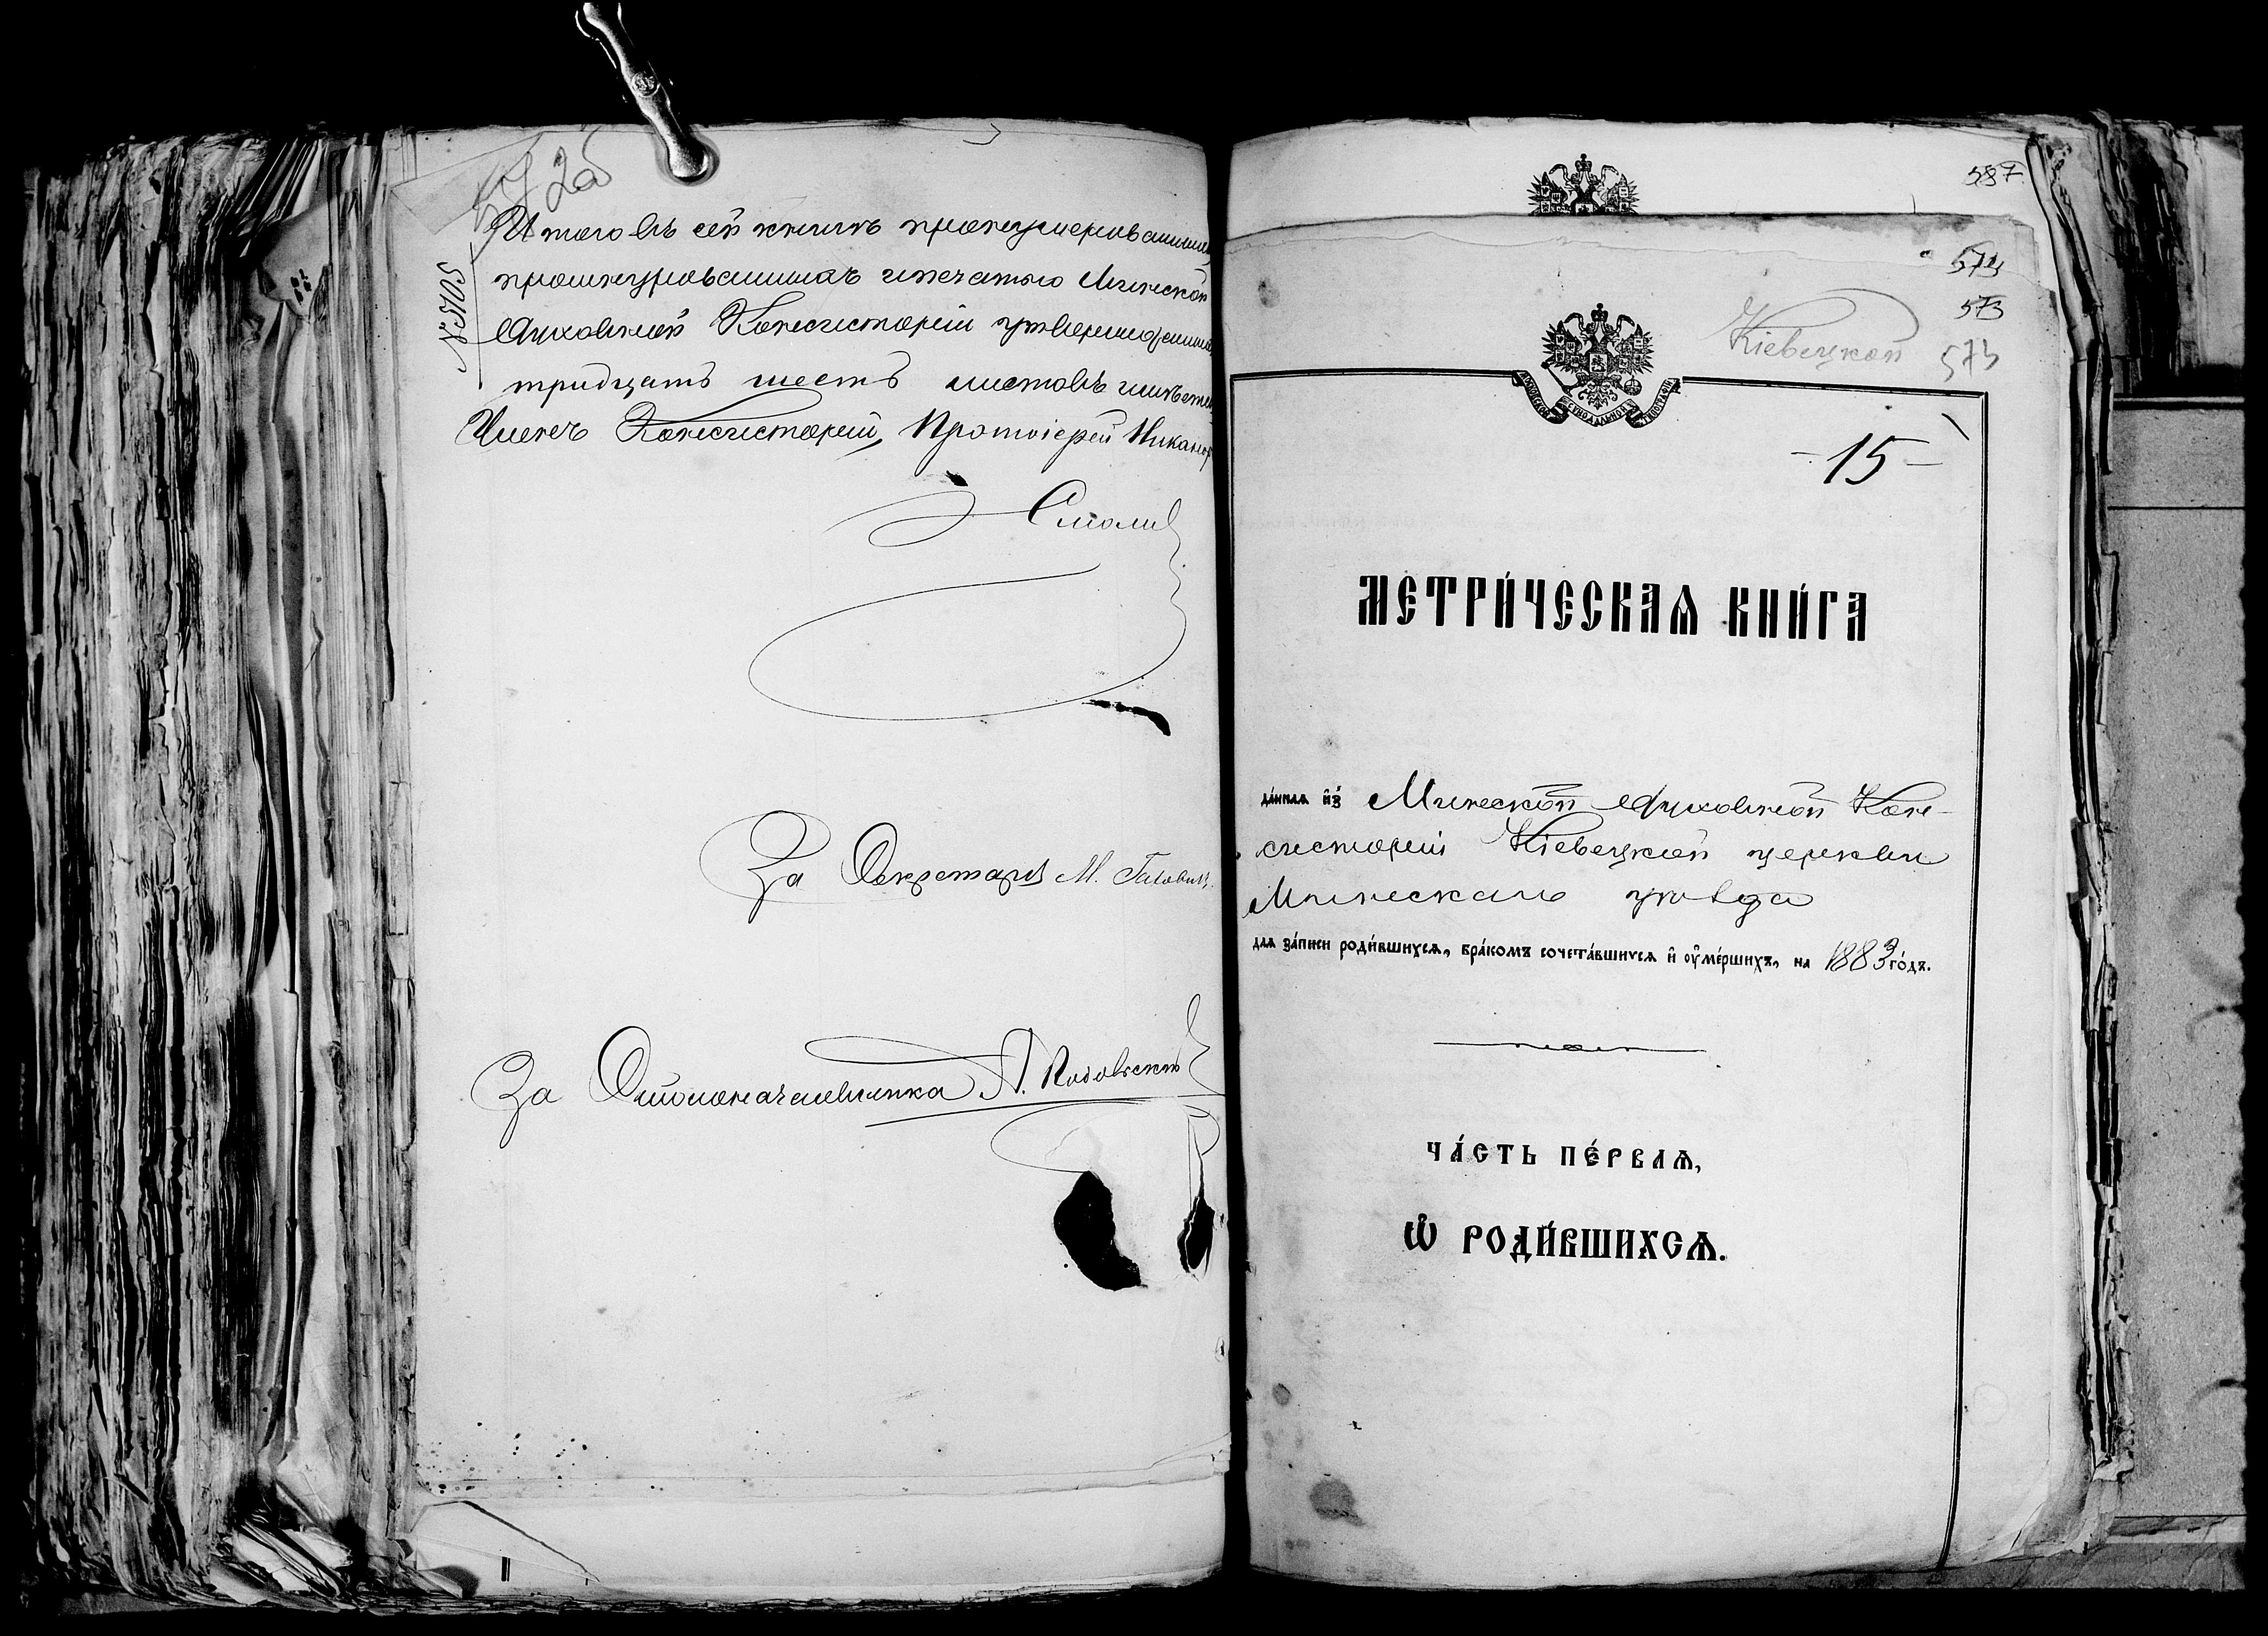 572об
Итого въ сей книгѣ пронумерованныхъ
прошнурованныхъ и печатью Минской
Духовной Консисторіи утвержденныхъ
тридцать шесть листовъ
Членъ Консисторіи, Протоіерей Никанор
Смолич
За Секретаря М.
За Столоначальника А.
№ 5705
587
573
573
Кіевецкой
573
МОСКОВСКОЙ СѴНОДАЛЬНОЙ ТИПОГРАФІИ
- 15 -
МЕТРИ́ЧЕСКАѦ КНИ́ГА
да́ннаѧ и҆з̾ Минской Духовной Кон-
систоріи Кіевецкой церкви
Минскаго уѣзда
длѧ за́писи роди́вшихсѧ, бра́комъ сочета́вшихсѧ и҆ оу҆ме́ршихъ, на 1883 го́дъ.
ЧА́СТЬ ПЕ́РВАѦ,
Ѽ РОДИ́ВШИХСѦ.